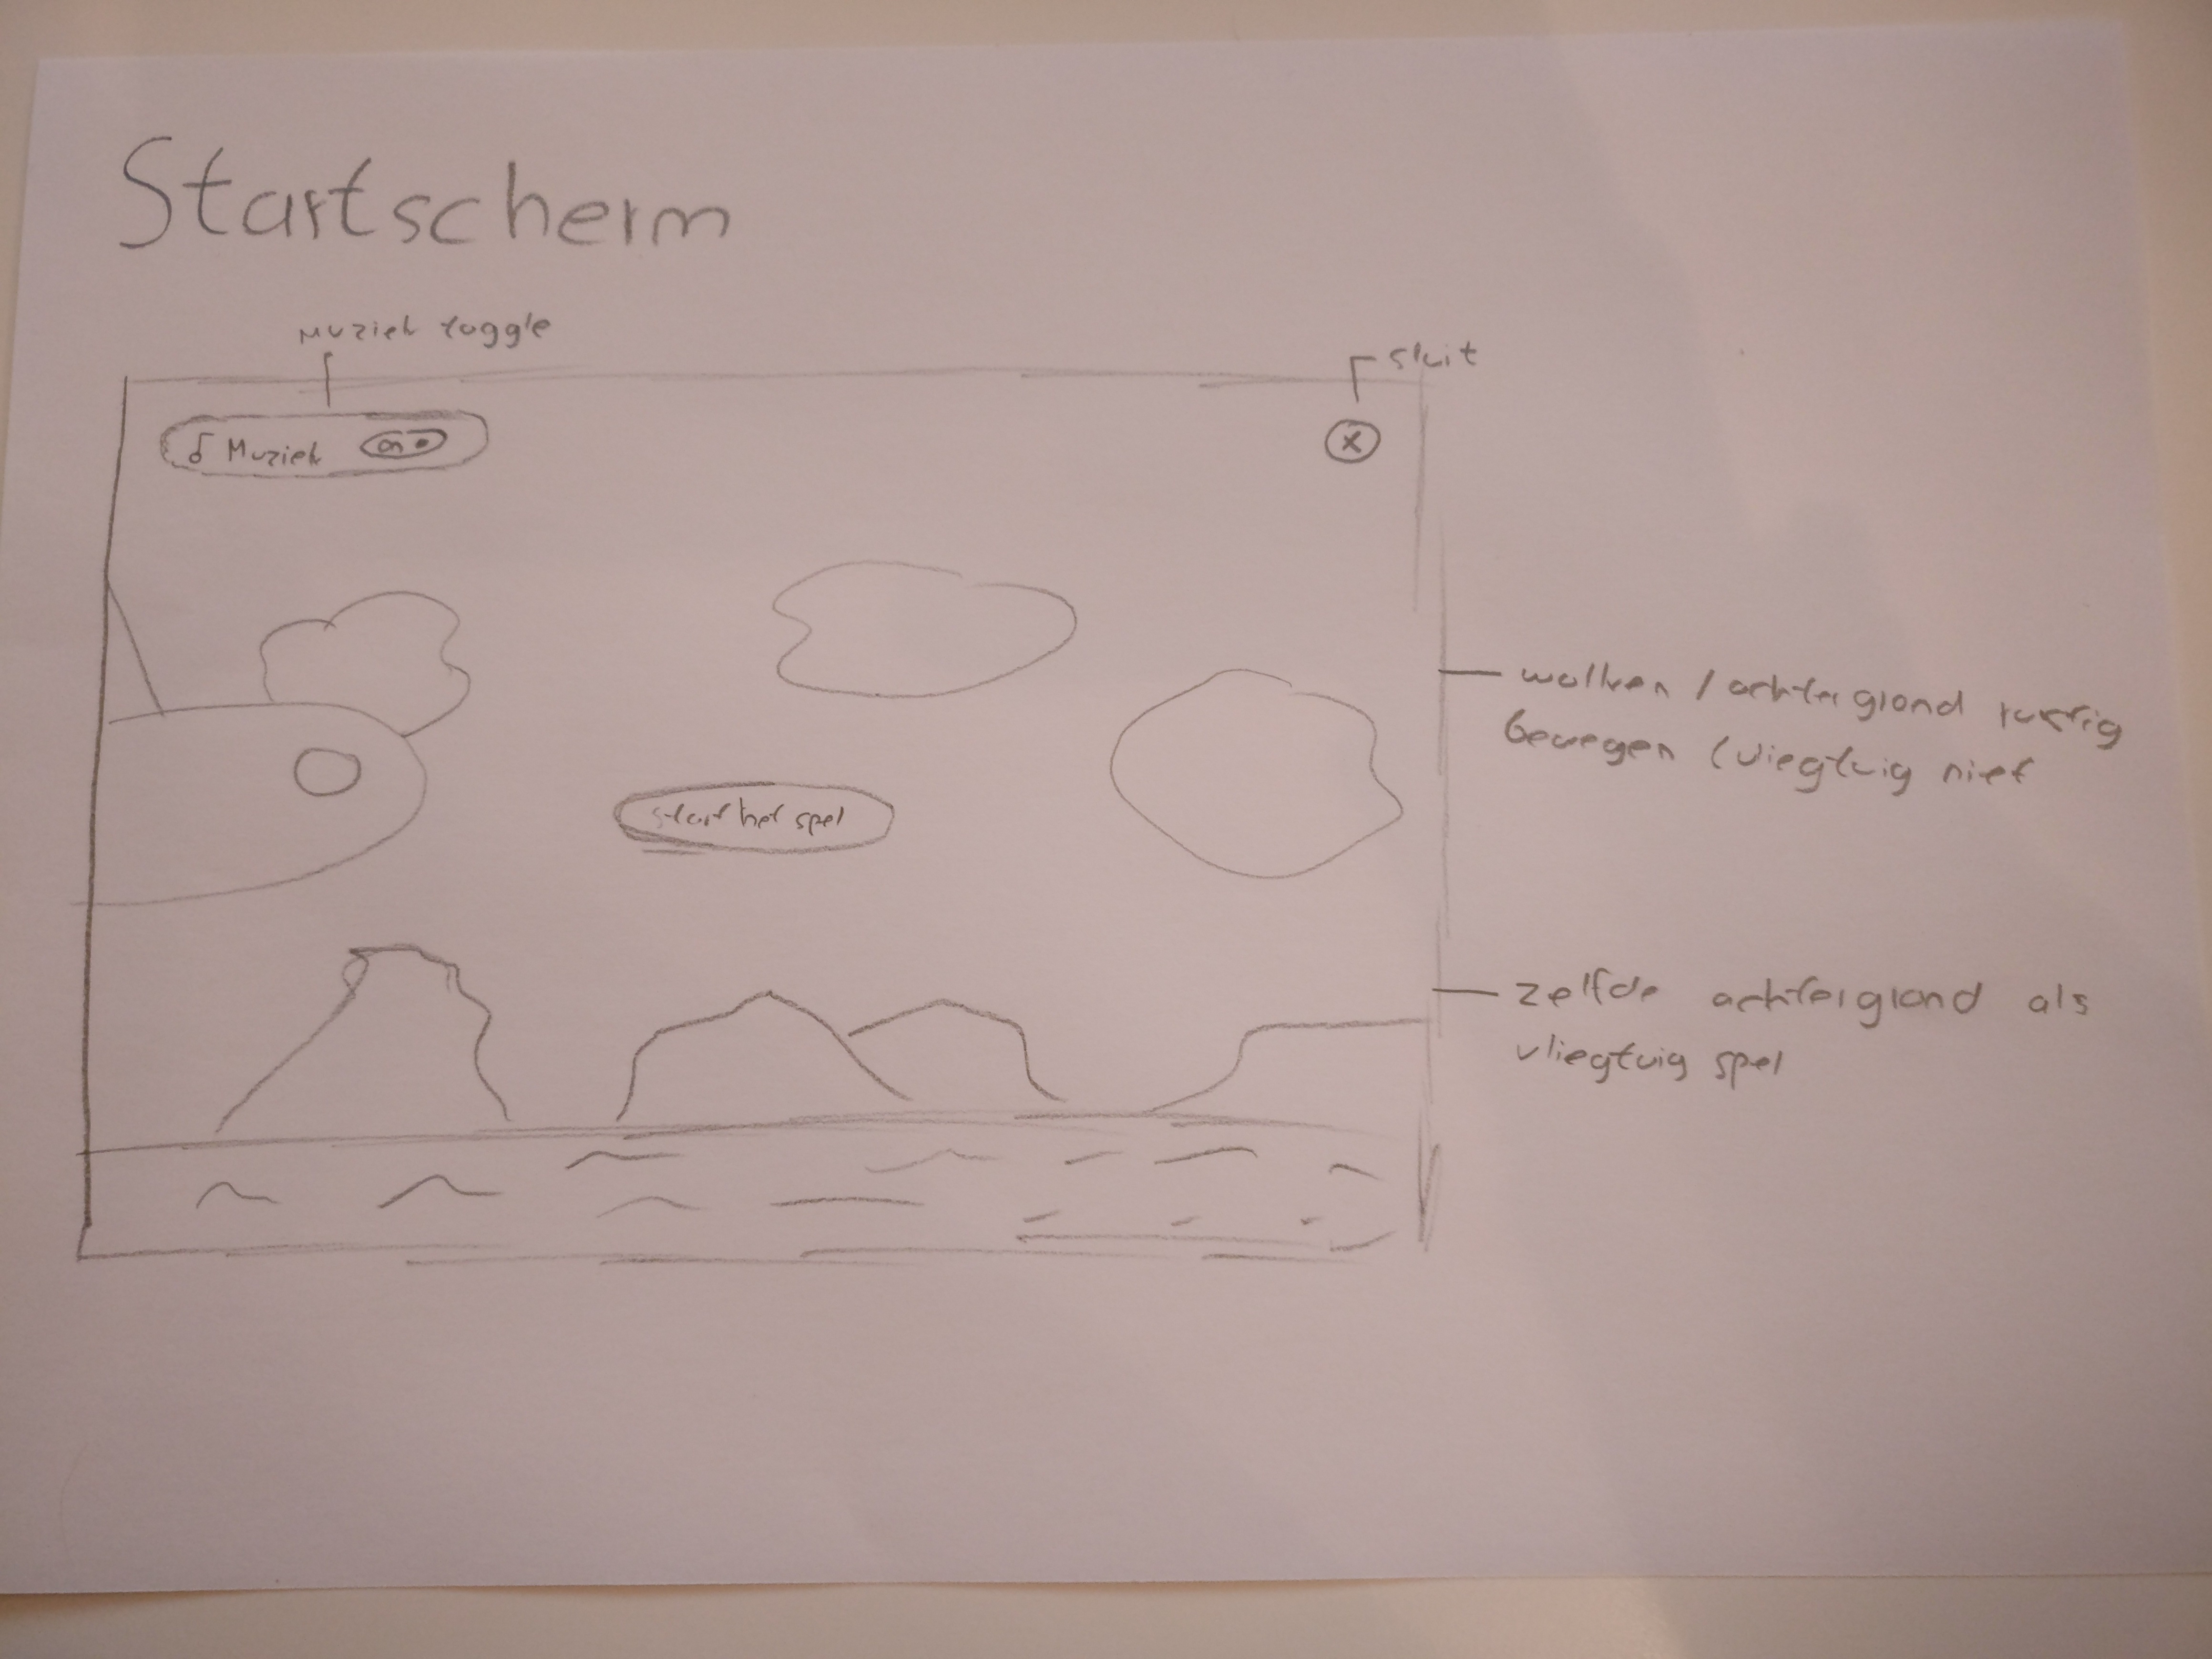 Startscherm
Muziek toggle
sluit
Muziek on
x
wolken / achtergrond rustig
bewegen (vliegtuig niet
start het spel
zelfde achtergrond als
vliegtuig spel